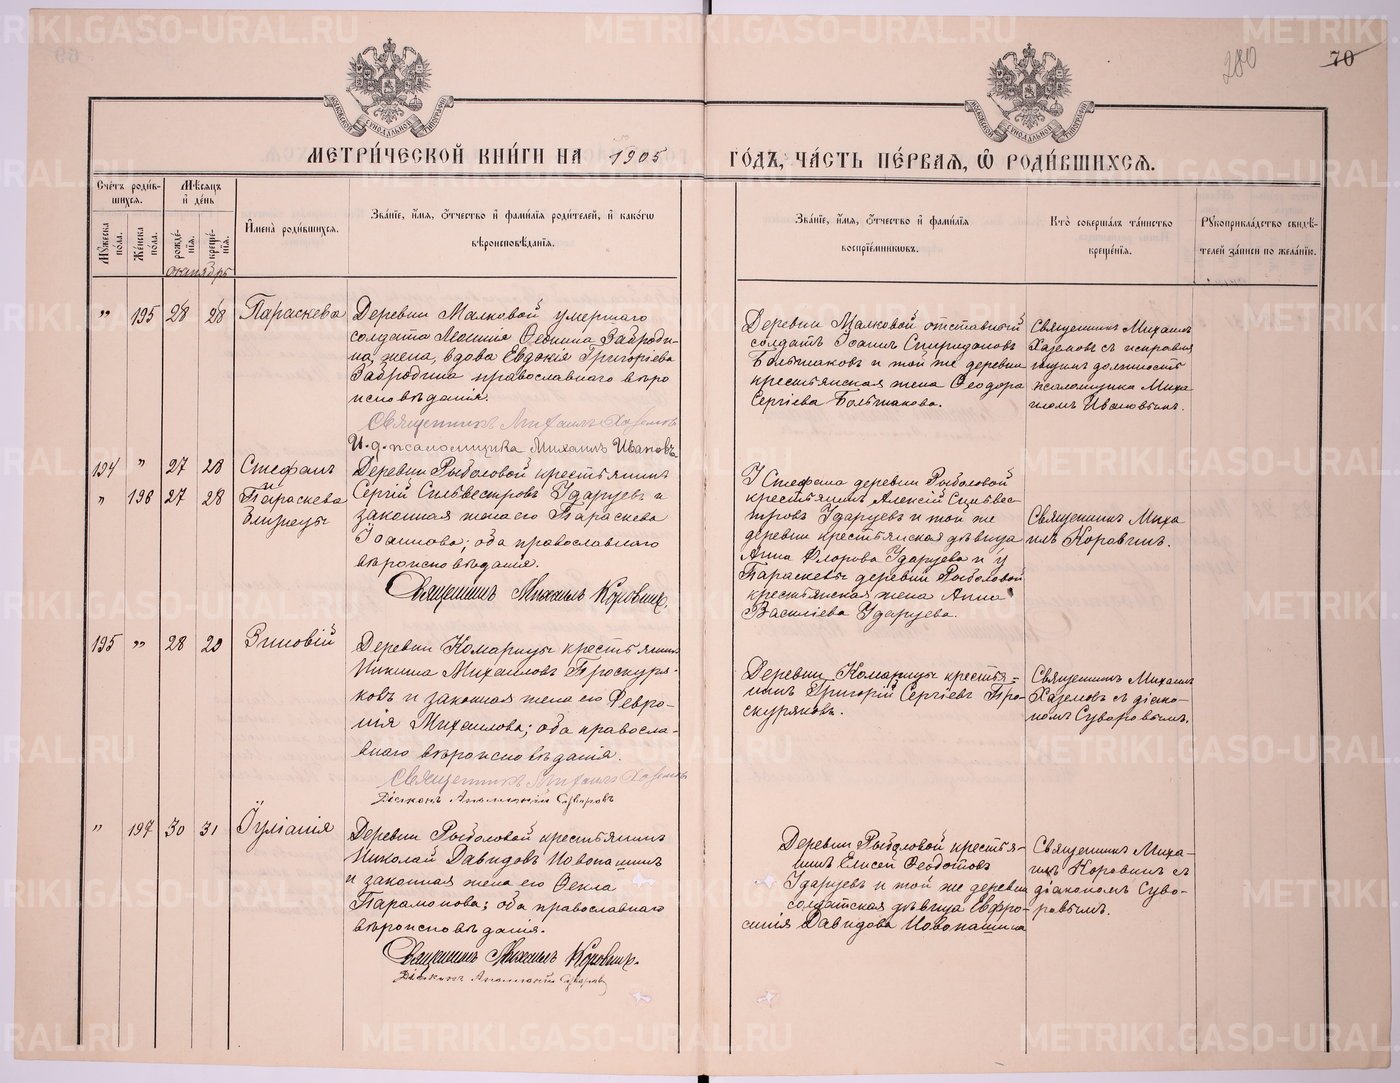 280
70
МЕТРИ́ЧЕСКОЙ КНИ́ГИ НА 1905 ГО́ДЪ, ЧА́СТЬ ПЕ́РВАЯ, Ѽ РОДИ́ВШИХСѦ.
Сче́тъ роди́в-
шихсѧ.
Мѣ́сѧцъ
и҆ де́нь
Мꙋ́жеска по́ла.
Же́нска по́ла.
рожде́-
нїѧ.
креще́-
нїѧ.
октябрь
И҆мена̀ роди́вшихсѧ.
Зва́нїе, и҆́мѧ, ѻ҆́тчество и҆ фами́лїѧ роди́телей, и҆ како́гѡ
вѣроисповѣ́данїѧ.
Зва́нїе, и҆́мѧ, ѻ҆́тчество и҆ фами́лїѧ
воспрїе́мниковъ.
Кто̀ соверша́лъ та́инство
креще́нїѧ.
Рꙋкоприкла́дство свидѣ́-
телей за́писи по жела́нїю.
" 195 28 28 Параскева
Деревни Малковой умершаго
солдата Леонтія Ѳеонина Забродин-
на жена, вдова Евдокія Григоріева
Забродина православнаго вѣро
исповѣданія.
Священникъ Михаилъ Хаземовъ
И. д. псаломщика Михаилъ Ивановъ
Деревни Малковой отставный
солдатъ Іоаннъ Спиридоновъ
Большаковъ и той же деревни
крестьянская жена Ѳеодора
Сергіева Большакова.
Священникъ Михаилъ
Хаземовъ съ исправля
ющимъ должность
псаломщика Миха
иломъ Ивановымъ.
194 " 27 28 Стефанъ
" 196 27 28 и Параскева
Близнецы
Деревни Рыболовой крестьянинъ
Сергій Сильвестровъ Ударцевъ и
законная жена его Параскева
Іоаннова; оба православнаго
вѣроисповѣданія.
Священникъ Михаилъ Коровинъ.
У Стефана деревни Рыболовой
крестьянинъ Алексій Сильвес-
тровъ Ударцевъ и той же
деревни крестьянская дѣвица
Анна Флорова Ударцева и у
Параскевы деревни Рыболовой
крестьянская жена Анна
Василіева Ударцева.
Священникъ Миха
илъ Коровинъ.
195 " 28 29 Зиновій
Деревни Комарицы крестьянинъ
Никита Михаиловъ Проскуря-
ковъ и законная жена его Февро-
нія Михаилова; оба правосла-
внаго вѣроисповѣданія.
Священникъ Михаилъ Хаземовъ
Діаконъ Суворовъ
Деревни Комарицы крестья-
нинъ Григорій Сергіевъ Про-
скуряковъ.
Священникъ Михаилъ
Хаземовъ съ діако-
номъ Суворовымъ.
" 197 30 31 Іуліанія
Деревни Рыболовой крестьянинъ
Николай Давидовъ Новопашинъ
и законная жена его Ѳекла
Парамонова; оба православнаго
вѣроисповѣданія.
Священникъ Михаилъ Коровинъ.
Діаконъ Суворовъ
Деревни Рыболовой крестья-
нинъ Елисей Ѳеодотовъ
Ударцевъ и той же деревни
солдатская дѣвица Евфро-
синія Давидова Новопашина
Священникъ Миха-
илъ Коровинъ съ
діакономъ Суво-
ровымъ.
METRIKI.GASO-URAL.RU